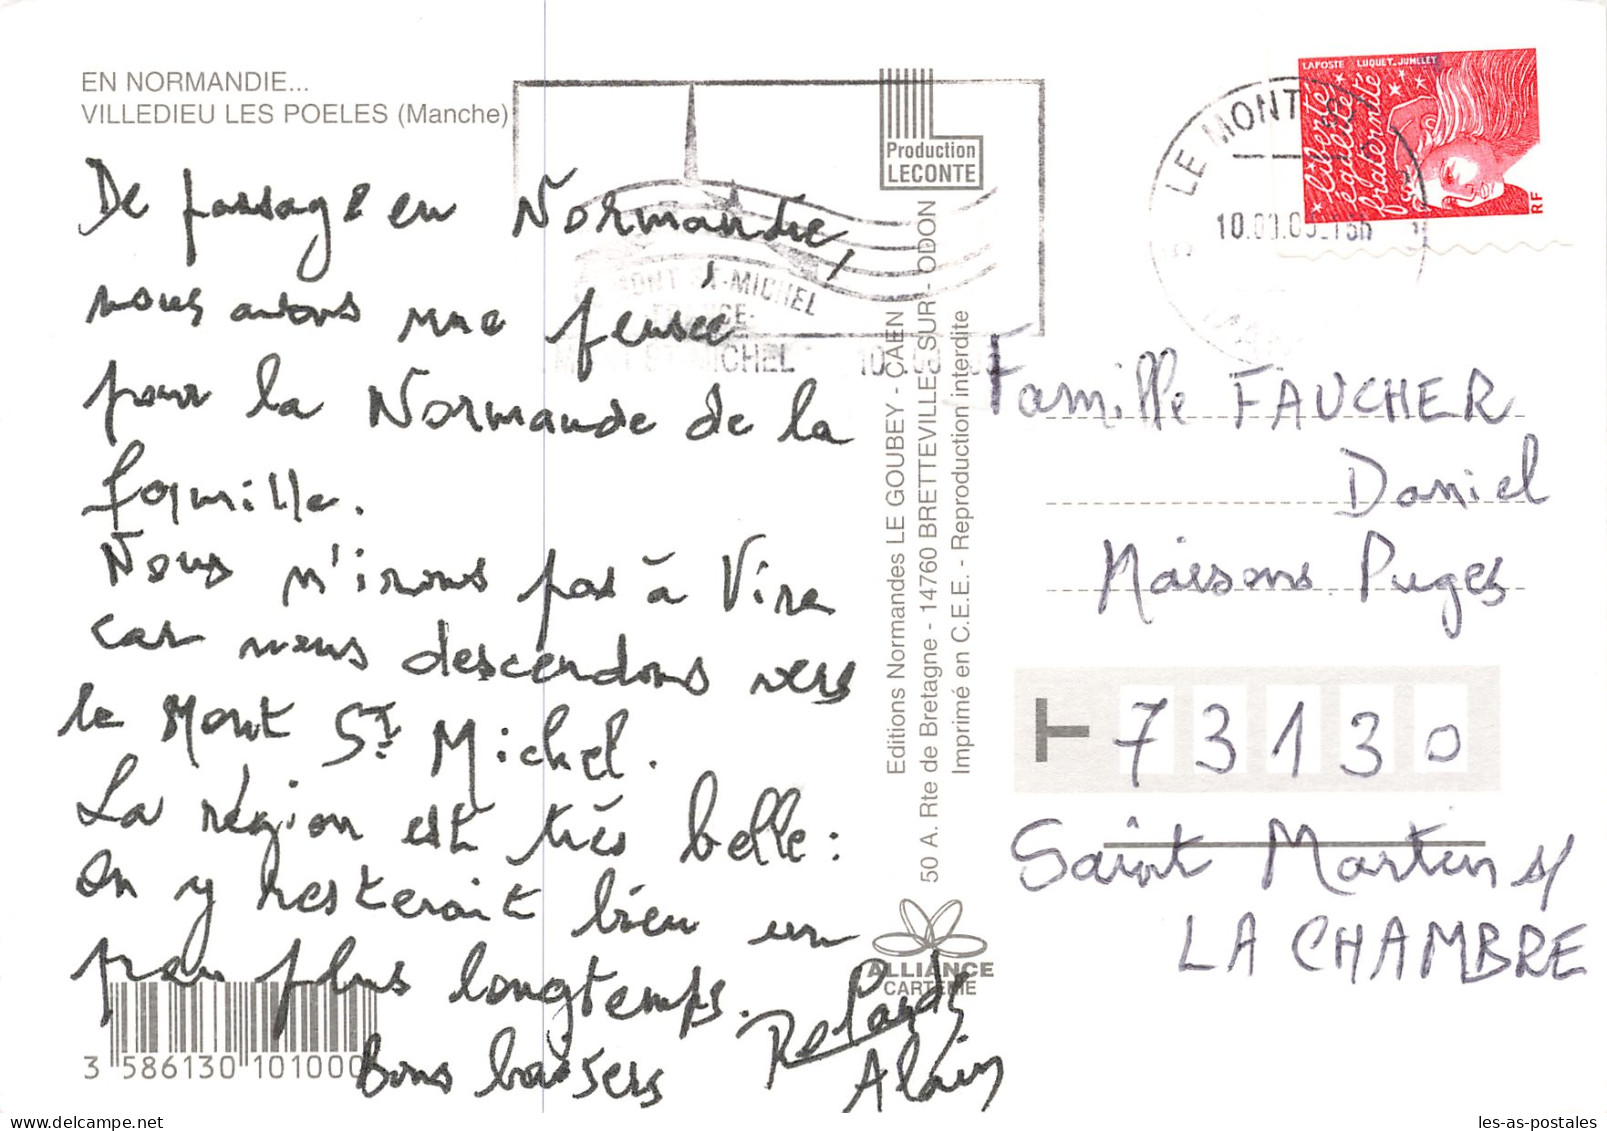 EN NORMANDIE...
VILLEDIEU LES POELES (Manche)
De passage en Normandie,
nous avons une pensée
pour la Normande de la
famille.
Nous n'irons pas à Vire
car nous descendons vers
le Mont St Michel.
La région est très belle :
on y resterait bien un
peu plus longtemps.
Bons baisers
Alain
3 586130 101000
Production
LECONTE
Editions Normandes LE GOUBEY - CAEN
50 A. Rte de Bretagne - 14760 BRETTEVILLE - SUR - ODON
Imprimé en C.E.E. - Reproduction interdite
ALLIANCE
CARTERIE
MONT-ST-MICHEL
LE MONT ST
LAPOSTE LUQUET-JUMELET
liberté
égalité
fraternité
RF
Famille FAUCHER
Daniel
Maisons Puges
T 73130
Saint Martin s/
LA CHAMBRE
les-as-postales